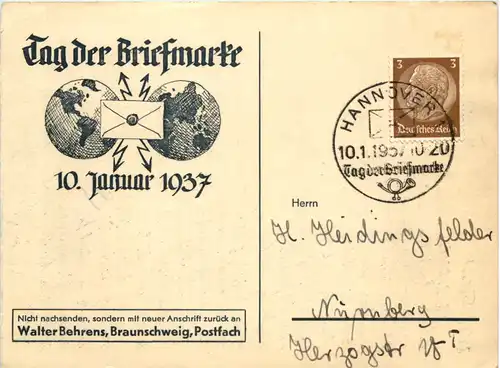 Tag der Briefmarke
10. Januar 1937
Nicht nachsenden, sondern mit neuer Anschrift zurück an
Walter Behrens, Braunschweig, Postfach
3 3
Deutsches Reich
HANNOVER
10.1.1937 10-20
Tag der Briefmarke
Herrn
H. Heidingsfelder
Nürnberg
Herzogstr